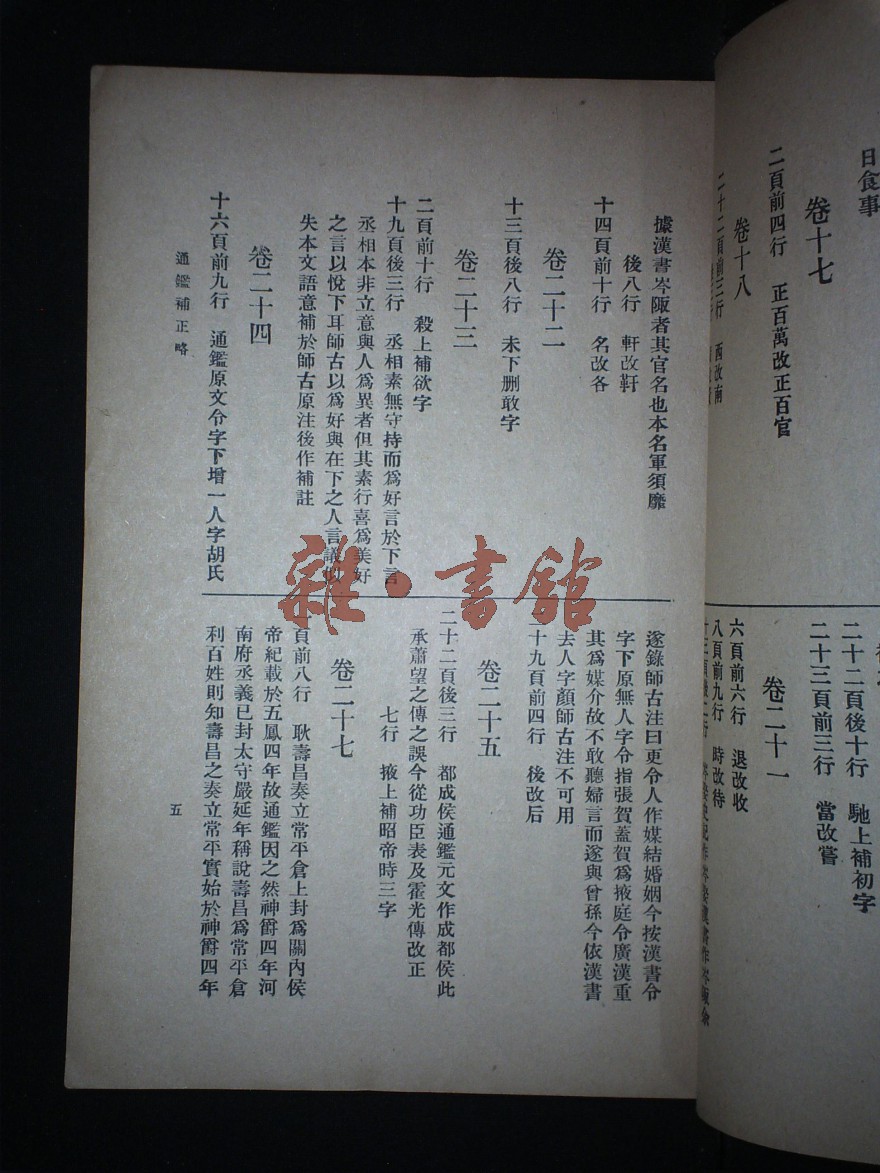 日食事
卷十七
二頁前四行　正百萬改正百官
卷十八
二十二頁前三行　西改南
二十二頁後十行　馳上補初字
二十三頁前三行　當改嘗
卷二十一
六頁前六行　退改收
八頁前九行　時改待
據漢書岑陬者其官名也本名軍須靡
後八行　軒改靬
十四頁前十行　名改各
卷二十二
十三頁後八行　未下删敢字
卷二十三
二頁前十行　殺上補欲字
十九頁後三行　丞相素無守持而爲好言於下言
丞相本非立意與人爲異者但其素行喜爲美好
之言以悅下耳師古以爲好與在下之人言議似
失本文語意補於師古原注後作補註
卷二十四
十六頁前九行　通鑑原文令字下增一人字胡氏
遂錄師古注曰更令人作媒結婚姻今按漢書令
字下原無人字令指張賀蓋賀爲掖庭令廣漢重
其爲媒介故不敢聽婦言而遂與曾孫今依漢書
去人字顏師古注不可用
十九頁前四行　後改后
卷二十五
二十二頁後三行　都成侯通鑑元文作成都侯此
承蕭望之傳之誤今從功臣表及霍光傳改正
七行　掖上補昭帝時三字
卷二十七
頁前八行　耿壽昌奏立常平倉上封爲關內侯
帝紀載於五鳳四年故通鑑因之然神爵四年河
南府丞義已封太守嚴延年稱說壽昌爲常平倉
利百姓則知壽昌之奏立常平實始於神爵四年
通鑑補正略
五
雜·書館